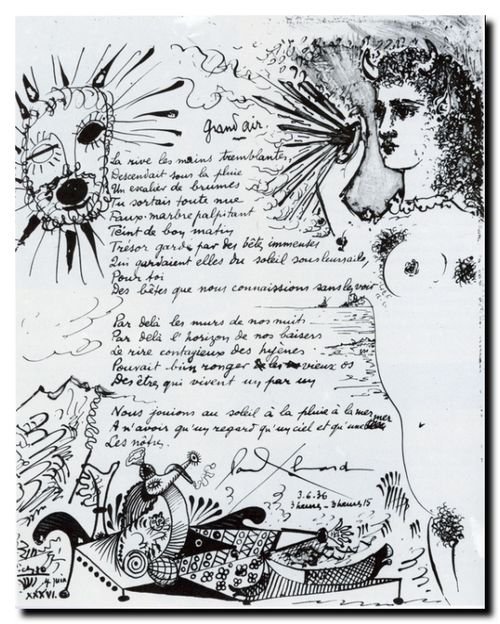 Grand air
La rive les mains tremblantes,
Descendait sous la pluie
Un escalier de brumes
Tu sortais toute nue
Faux marbre palpitant
Teint de bon matin
Trésor gardé par des bêtes immenses
Qui gardaient elles du soleil sous leurs ailes
Pour toi
Des bêtes que nous connaissions sans les voir
Par delà les murs de nos nuits
Par delà l'horizon de nos baisers
Le rire contagieux des hyènes
Pouvait bien ronger les vieux os
Des êtres qui vivent un par un
Nous jouions au soleil à la pluie à la mer
A n'avoir qu'un regard qu'un ciel et qu'une mer
Les nôtres
Paul Eluard
3.6.36
3 heures - 3 heures 15
4 juin
XXXVI.